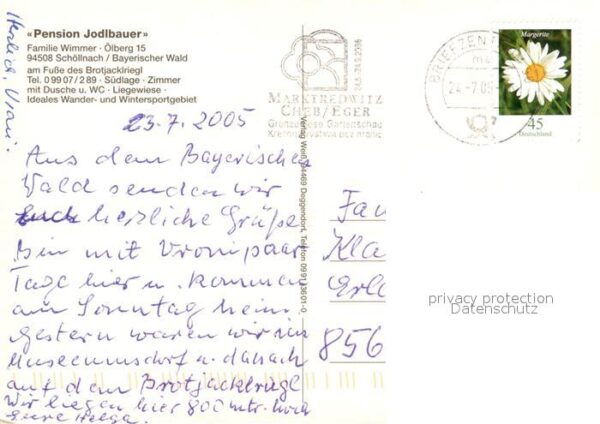 «Pension Jodlbauer»
Familie Wimmer · Ölberg 15
94508 Schöllnach / Bayerischer Wald
am Fuße des Brotjacklriegl
Tel. 0 99 07 / 2 89 · Südlage · Zimmer
mit Dusche u. WC · Liegewiese ·
Ideales Wander- und Wintersportgebiet
Herzlich, Vroni!
23.7.2005
Aus dem Bayerischen
Wald senden wir
euch herzliche Grüße
Bin mit Vroni paar
Tage hier u. kommen
am Sonntag heim
gestern waren wir im
Museumsdorf u. danach
auf dem Brotjacklriegl
Wir liegen hier 800 mtr. hoch
Eure Helga.
MARKTREDWITZ
CHEB/EGER
Grenzenlose Gartenschau
Krajinná výstava bez hranic
Verlag Weiß, 94469 Deggendorf, Telefon 0991/3601-0
BRIEFZEN
24-7.05
Margerite
45
Deutschland
Fam
Kla
Erl
856
privacy protection
Datenschutz